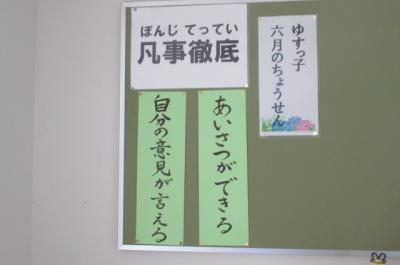 ぼんじ てってい
凡事徹底
ゆすっ子
六月のちょうせん
あいさつができる
自分の意見が言える